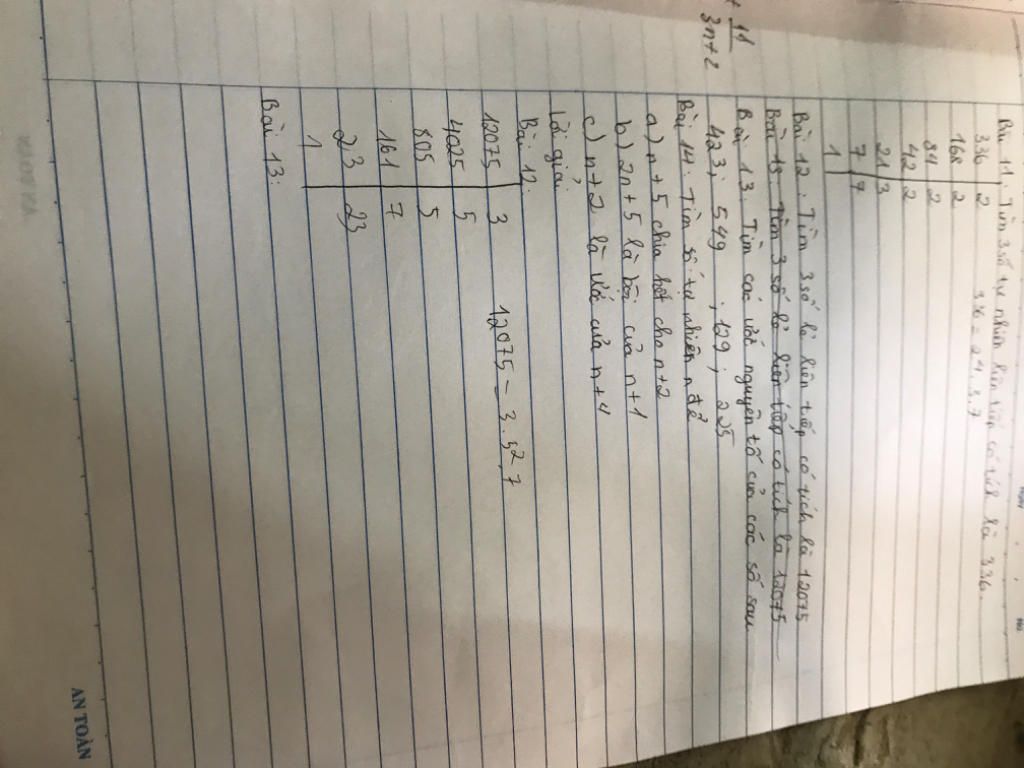 Bài 11. Tìm 3 số tự nhiên liên tiếp có tích là 336.
336 2 336 = 2^4.3.7
168 2
84 2
42 2
21 3
7 7
1
Bài 12. Tìm 3 số lẻ liên tiếp có tích là 12075
Bài 13. Tìm 3 số lẻ liên tiếp có tích là 12075
Bài 13. Tìm các ước nguyên tố của các số sau
423; 549; 129; 225
Bài 14. Tìm số tự nhiên n để
a) n + 5 chia hết cho n + 2
b) 2n + 5 là bội của n + 1
c) n + 2 là ước của n + 4
Lời giải
Bài 12:
12075 3 12075 = 3.5^2.7
4025 5
805 5
161 7
23 23
1
Bài 13:
+ 11
3n+2
AN TOÀN